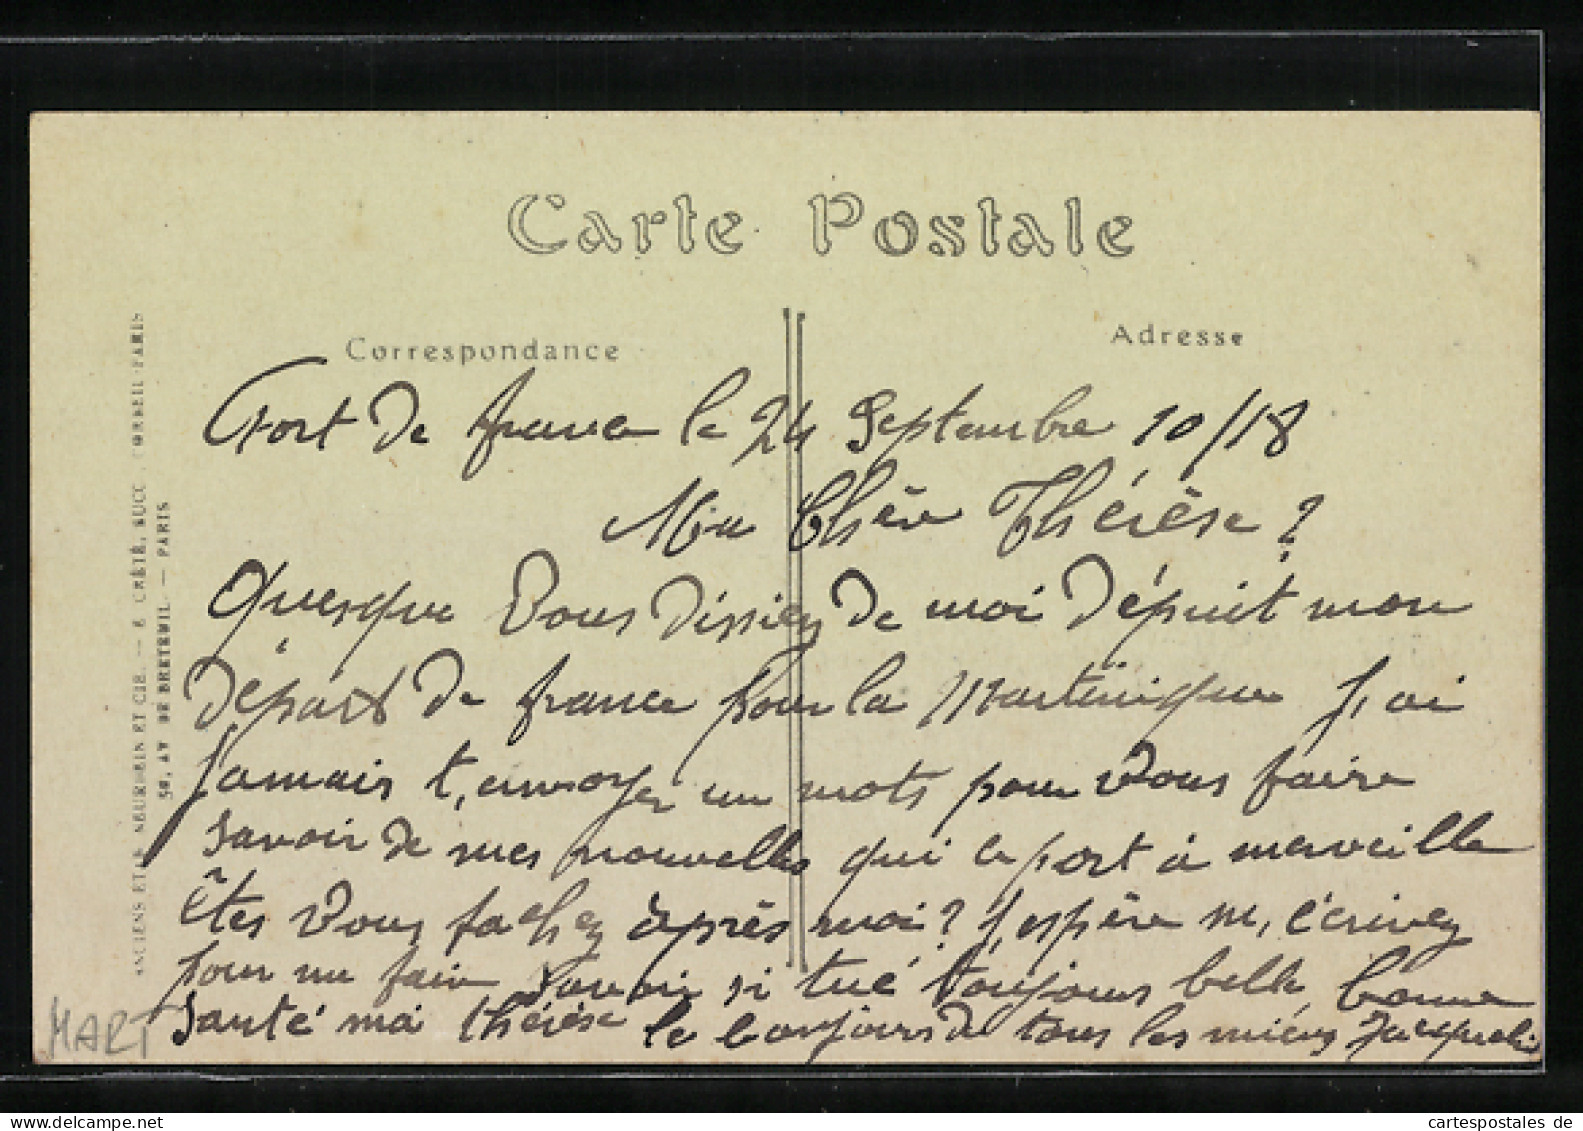 Carte Postale
Correspondance
Adresse
Fort De france le 24 Septembre 10/18
Ma Chère Thérèse ?
Quesque Vous Dissiez De moi Dépuit mon
Départ De france pour la Martinique J'ai
Jamais t'envoyer un mots pour Vous faire
Savoir de mes nouvelles qui le port à merveille
êtes Vous fachez après moi ? J'espère m'écrivez
pour me faire Savoir si tué toujours belle bonne
Santé ma thérèse le bonjours de tous les miens Jacqueli
ANCIENS ETS NEURDEIN ET CIE. — E. CRÉTÉ, SUCC, CORBEIL-PARIS
50, AV DE BRETEUIL. — PARIS
MART
cartespostales.de
www.delcampe.net